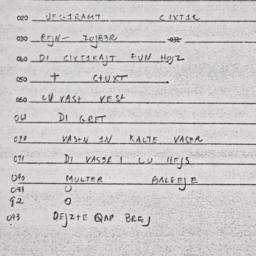 020 VEGIRAMT CIXTIR
030 REJN- ZUJBER
040 DI CIXTIKAJT FUN HOJZ
050 + CTUXT
060 CU VAST VEST
061 DI GRET
070 VASTU IN KALTE VASER
071 DI VASER I CU HEJS
090 MULTER BALEEJE
091 0
92 0
093 DEJZTE QAP BREJ